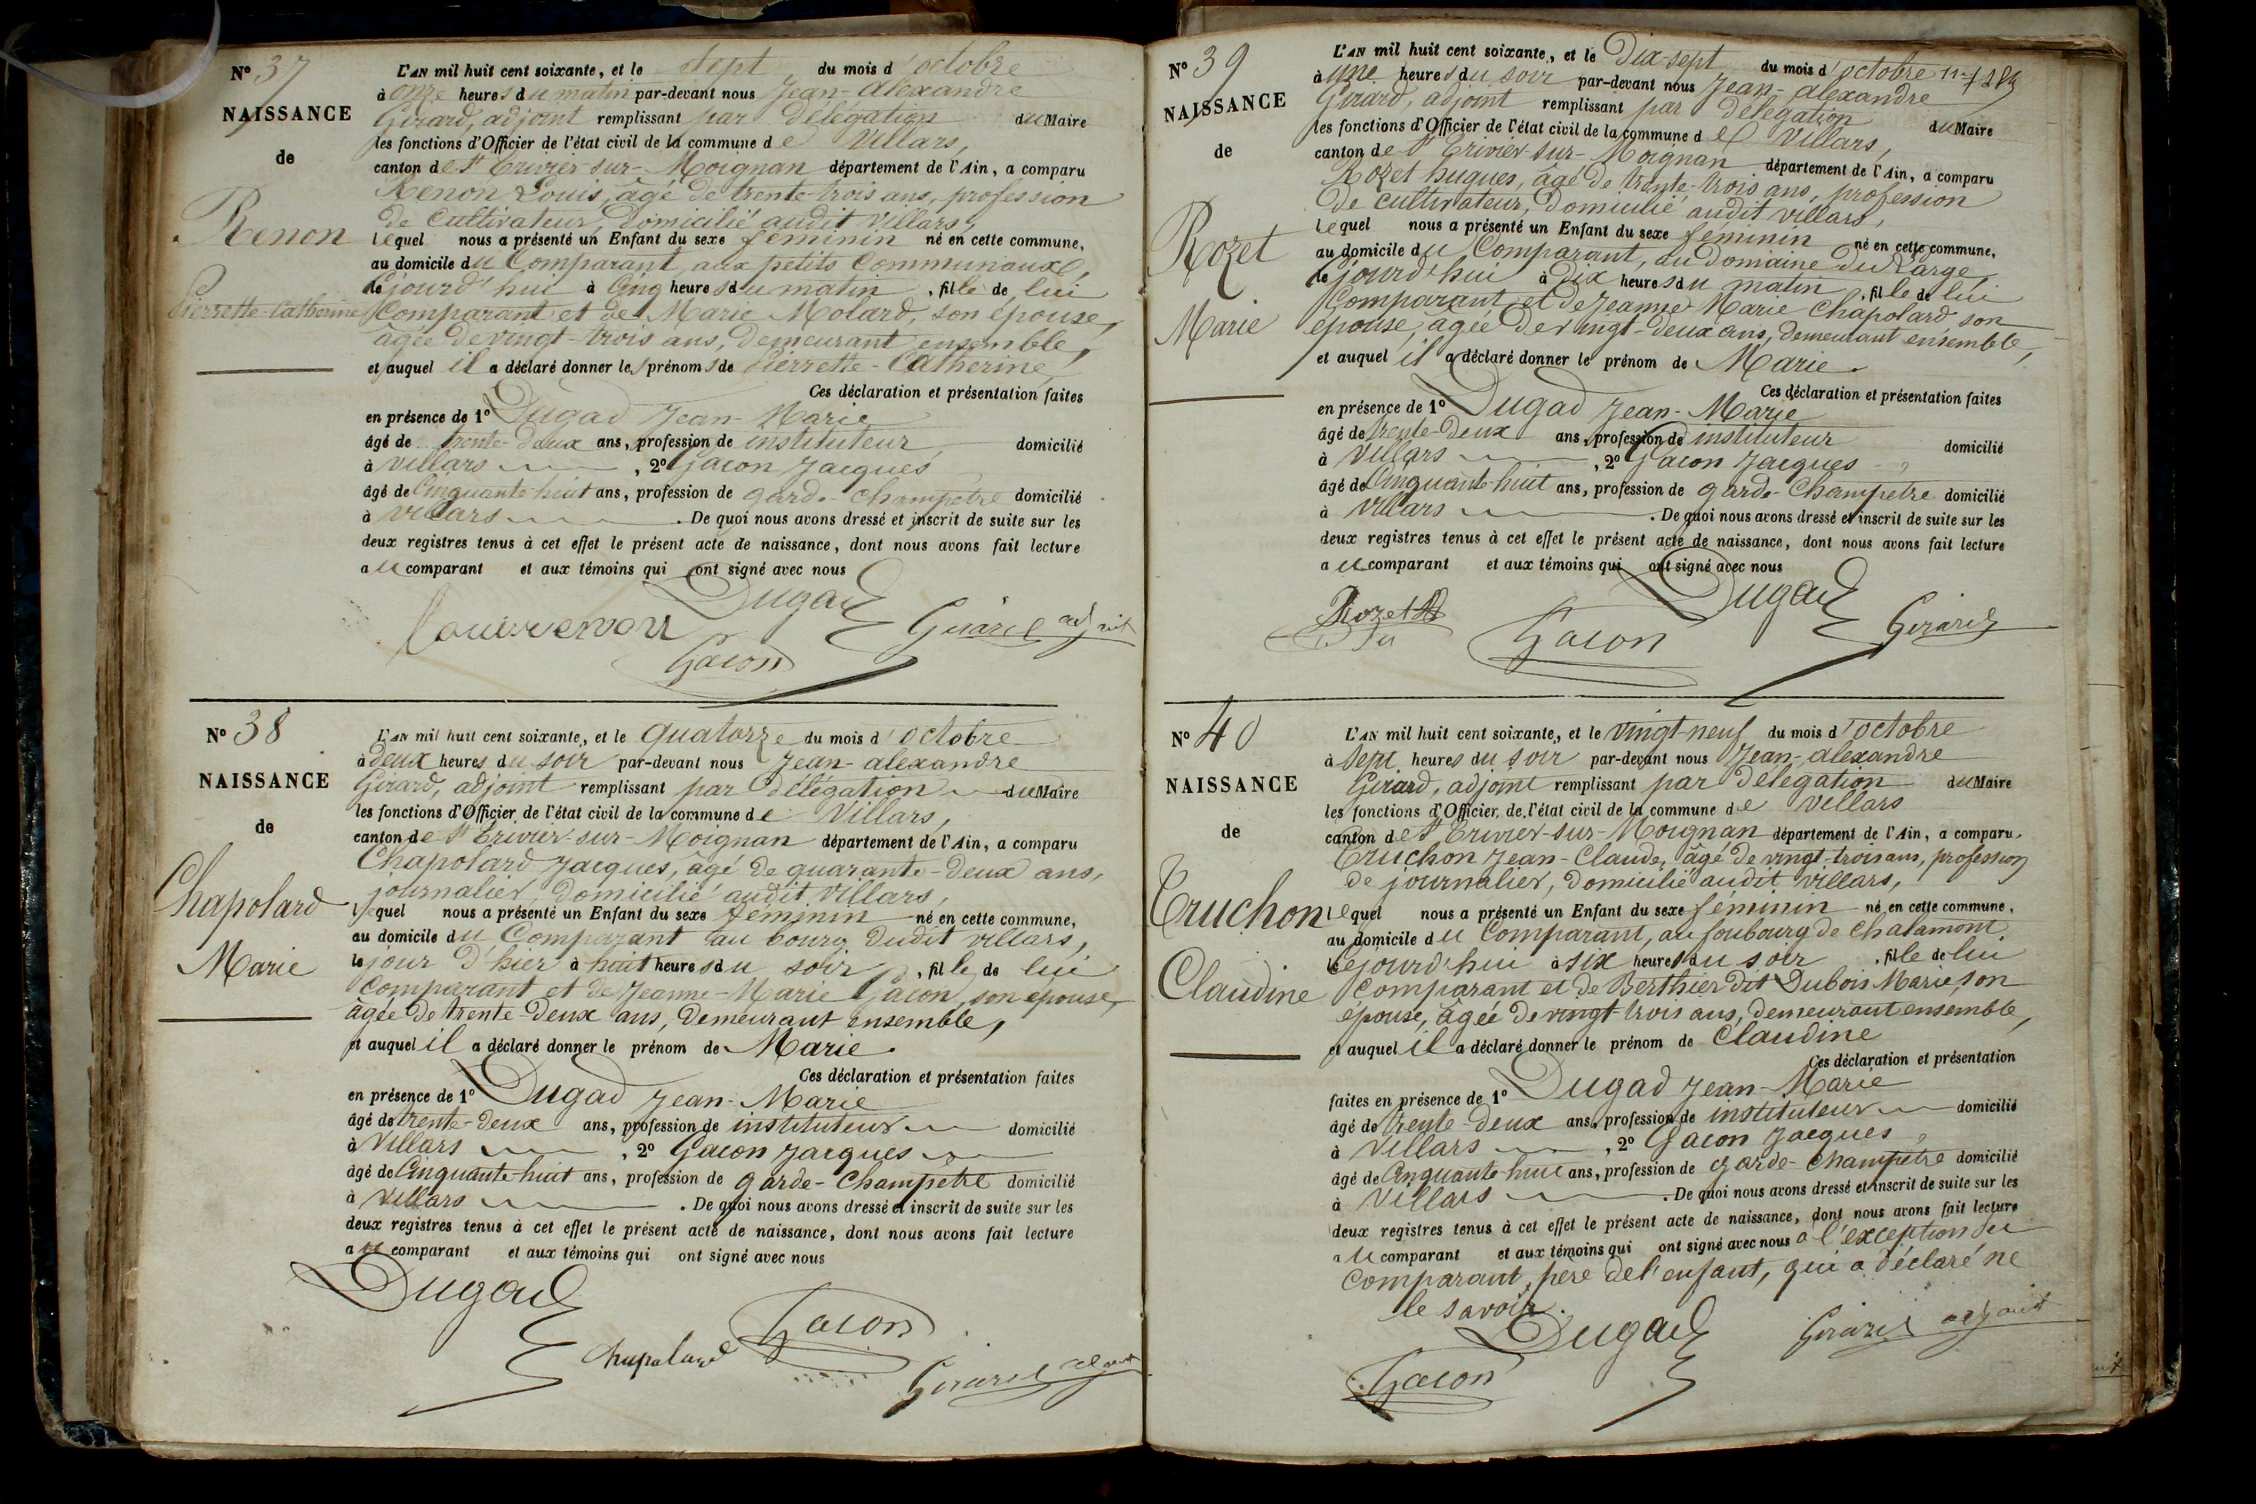 N° 37
NAISSANCE
de
Renon
Pierrette-Catherine
L'AN mil huit cent soixante, et le sept du mois d'octobre
à onze heures du matin par-devant nous Jean-Alexandre
Girard, adjoint remplissant par délégation du Maire
les fonctions d'Officier de l'état civil de la commune de Villars,
canton de St Trivier-sur-Moignan département de l'Ain, a comparu
Renon Louis, âgé de trente-trois ans, profession
de cultivateur, domicilié audit Villars,
lequel nous a présenté un Enfant du sexe féminin né en cette commune,
au domicile du Comparant, aux petits Communaux,
cejourd'hui à cinq heures du matin, fille de lui
Comparant et de Marie Molard, son épouse,
âgée de vingt-trois ans, demeurant ensemble,
et auquel il a déclaré donner les prénoms de Pierrette-Catherine,
Ces déclaration et présentation faites
en présence de 1° Dugad Jean-Marie
âgé de trente-deux ans, profession de instituteur, domicilié
à Villars, 2° Gacon Jacques
âgé de Cinquante-huit ans, profession de garde-Champetre domicilié
à Villars. De quoi nous avons dressé et inscrit de suite sur les
deux registres tenus à cet effet le présent acte de naissance, dont nous avons fait lecture
au comparant et aux témoins qui ont signé avec nous
Louis renon Dugad Girard adjoint
Gacon
N° 38
NAISSANCE
de
Chapolard
Marie
L'AN mil huit cent soixante, et le quatorze du mois d'octobre
à deux heures du soir par-devant nous Jean-Alexandre
Girard, adjoint remplissant par délégation du Maire
les fonctions d'Officier de l'état civil de la commune de Villars,
canton de St Trivier-sur-Moignan département de l'Ain, a comparu
Chapolard Jacques, âgé de quarante-deux ans,
journalier, domicilié audit Villars,
lequel nous a présenté un Enfant du sexe féminin né en cette commune,
au domicile du Comparant au bourg dudit Villars,
le jour d'hier à huit heures du soir, fille de lui
comparant et de Jeanne-Marie Gacon, son épouse,
âgée de trente-deux ans, demeurant ensemble,
et auquel il a déclaré donner le prénom de Marie.
Ces déclaration et présentation faites
en présence de 1° Dugad Jean-Marie
âgé de trente-deux ans, profession de instituteur domicilié
à Villars, 2° Gacon Jacques
âgé de Cinquante-huit ans, profession de garde-Champetre domicilié
à Villars. De quoi nous avons dressé et inscrit de suite sur les
deux registres tenus à cet effet le présent acte de naissance, dont nous avons fait lecture
au comparant et aux témoins qui ont signé avec nous
Dugad
Chapolard Gacon
Girard adjoint
N° 39
NAISSANCE
de
Rozet
Marie
L'AN mil huit cent soixante, et le Dix-sept du mois d'octobre
à une heure du soir par-devant nous Jean-Alexandre
Girard, adjoint remplissant par délégation du Maire
les fonctions d'Officier de l'état civil de la commune de Villars,
canton de St Trivier-sur-Moignan département de l'Ain, a comparu
Rozet hugues, âgé de trente-trois ans, profession
de cultivateur, domicilié audit Villars,
lequel nous a présenté un Enfant du sexe féminin né en cette commune,
au domicile du Comparant, au domaine du Large,
cejourd'hui à dix heures du matin, fille de lui
Comparant et de Jeanne Marie Chapolard son
épouse, âgée de vingt-deux ans, demeurant ensemble,
et auquel il a déclaré donner le prénom de Marie.
Ces déclaration et présentation faites
en présence de 1° Dugad Jean-Marie
âgé de trente-deux ans, profession de instituteur domicilié
à Villars, 2° Gacon Jacques
âgé de Cinquante-huit ans, profession de garde-Champetre domicilié
à Villars. De quoi nous avons dressé et inscrit de suite sur les
deux registres tenus à cet effet le présent acte de naissance, dont nous avons fait lecture
au comparant et aux témoins qui ont signé avec nous
Rozet Dugad Girard
Gacon
N° 40
NAISSANCE
de
Truchon
Claudine
L'AN mil huit cent soixante, et le vingt-neuf du mois d'octobre
à sept heures du soir par-devant nous Jean-Alexandre
Girard, adjoint remplissant par délégation du Maire
les fonctions d'Officier de l'état civil de la commune de Villars
canton de St Trivier-sur-Moignan département de l'Ain, a comparu
Truchon Jean-Claude, âgé de vingt-trois ans, profession
de journalier, domicilié audit Villars,
lequel nous a présenté un Enfant du sexe féminin né en cette commune,
au domicile du Comparant, au foubourg de Chalamont
cejourd'hui à six heures du soir, fille de lui
comparant et de Berthier dit Dubois Marie, son
épouse, âgée de vingt trois ans, demeurant ensemble,
et auquel il a déclaré donner le prénom de Claudine
Ces déclaration et présentation
faites en présence de 1° Dugad Jean-Marie
âgé de trente-deux ans, profession de instituteur domicilié
à Villars, 2° Gacon Jacques,
âgé de Cinquante-huit ans, profession de garde-Champetre domicilié
à Villars. De quoi nous avons dressé et inscrit de suite sur les
deux registres tenus à cet effet le présent acte de naissance, dont nous avons fait lecture
au comparant et aux témoins qui ont signé avec nous à l'exception du
comparant, père de l'enfant, qui a déclaré ne
le savoir.
Dugad Girard adjoint
Gacon